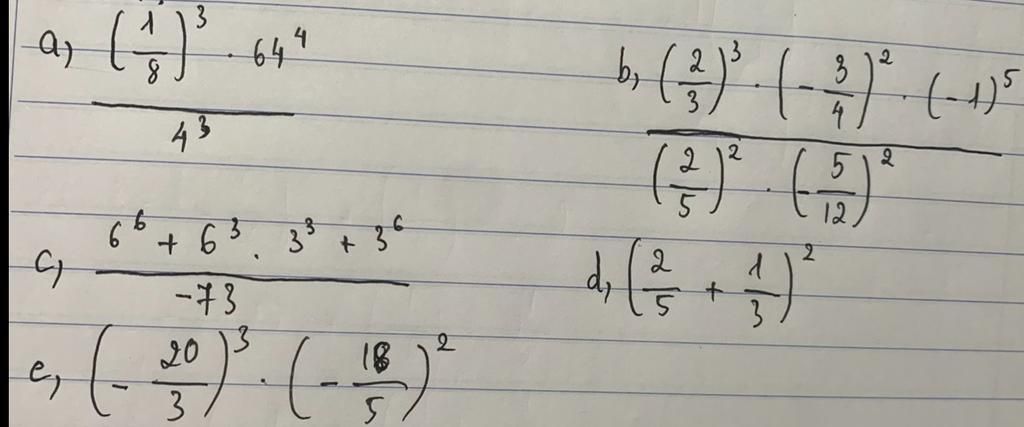 a, (1/8)³ · 64⁴ / 4³
b, (2/3)³ · (-3/4)² · (-1)⁵ / (2/5)² · (-5/12)²
c, 6⁶ + 6³ . 3³ + 3⁶ / -73
d, (2/5 + 1/3)²
e, (-20/3)³ · (-18/5)²